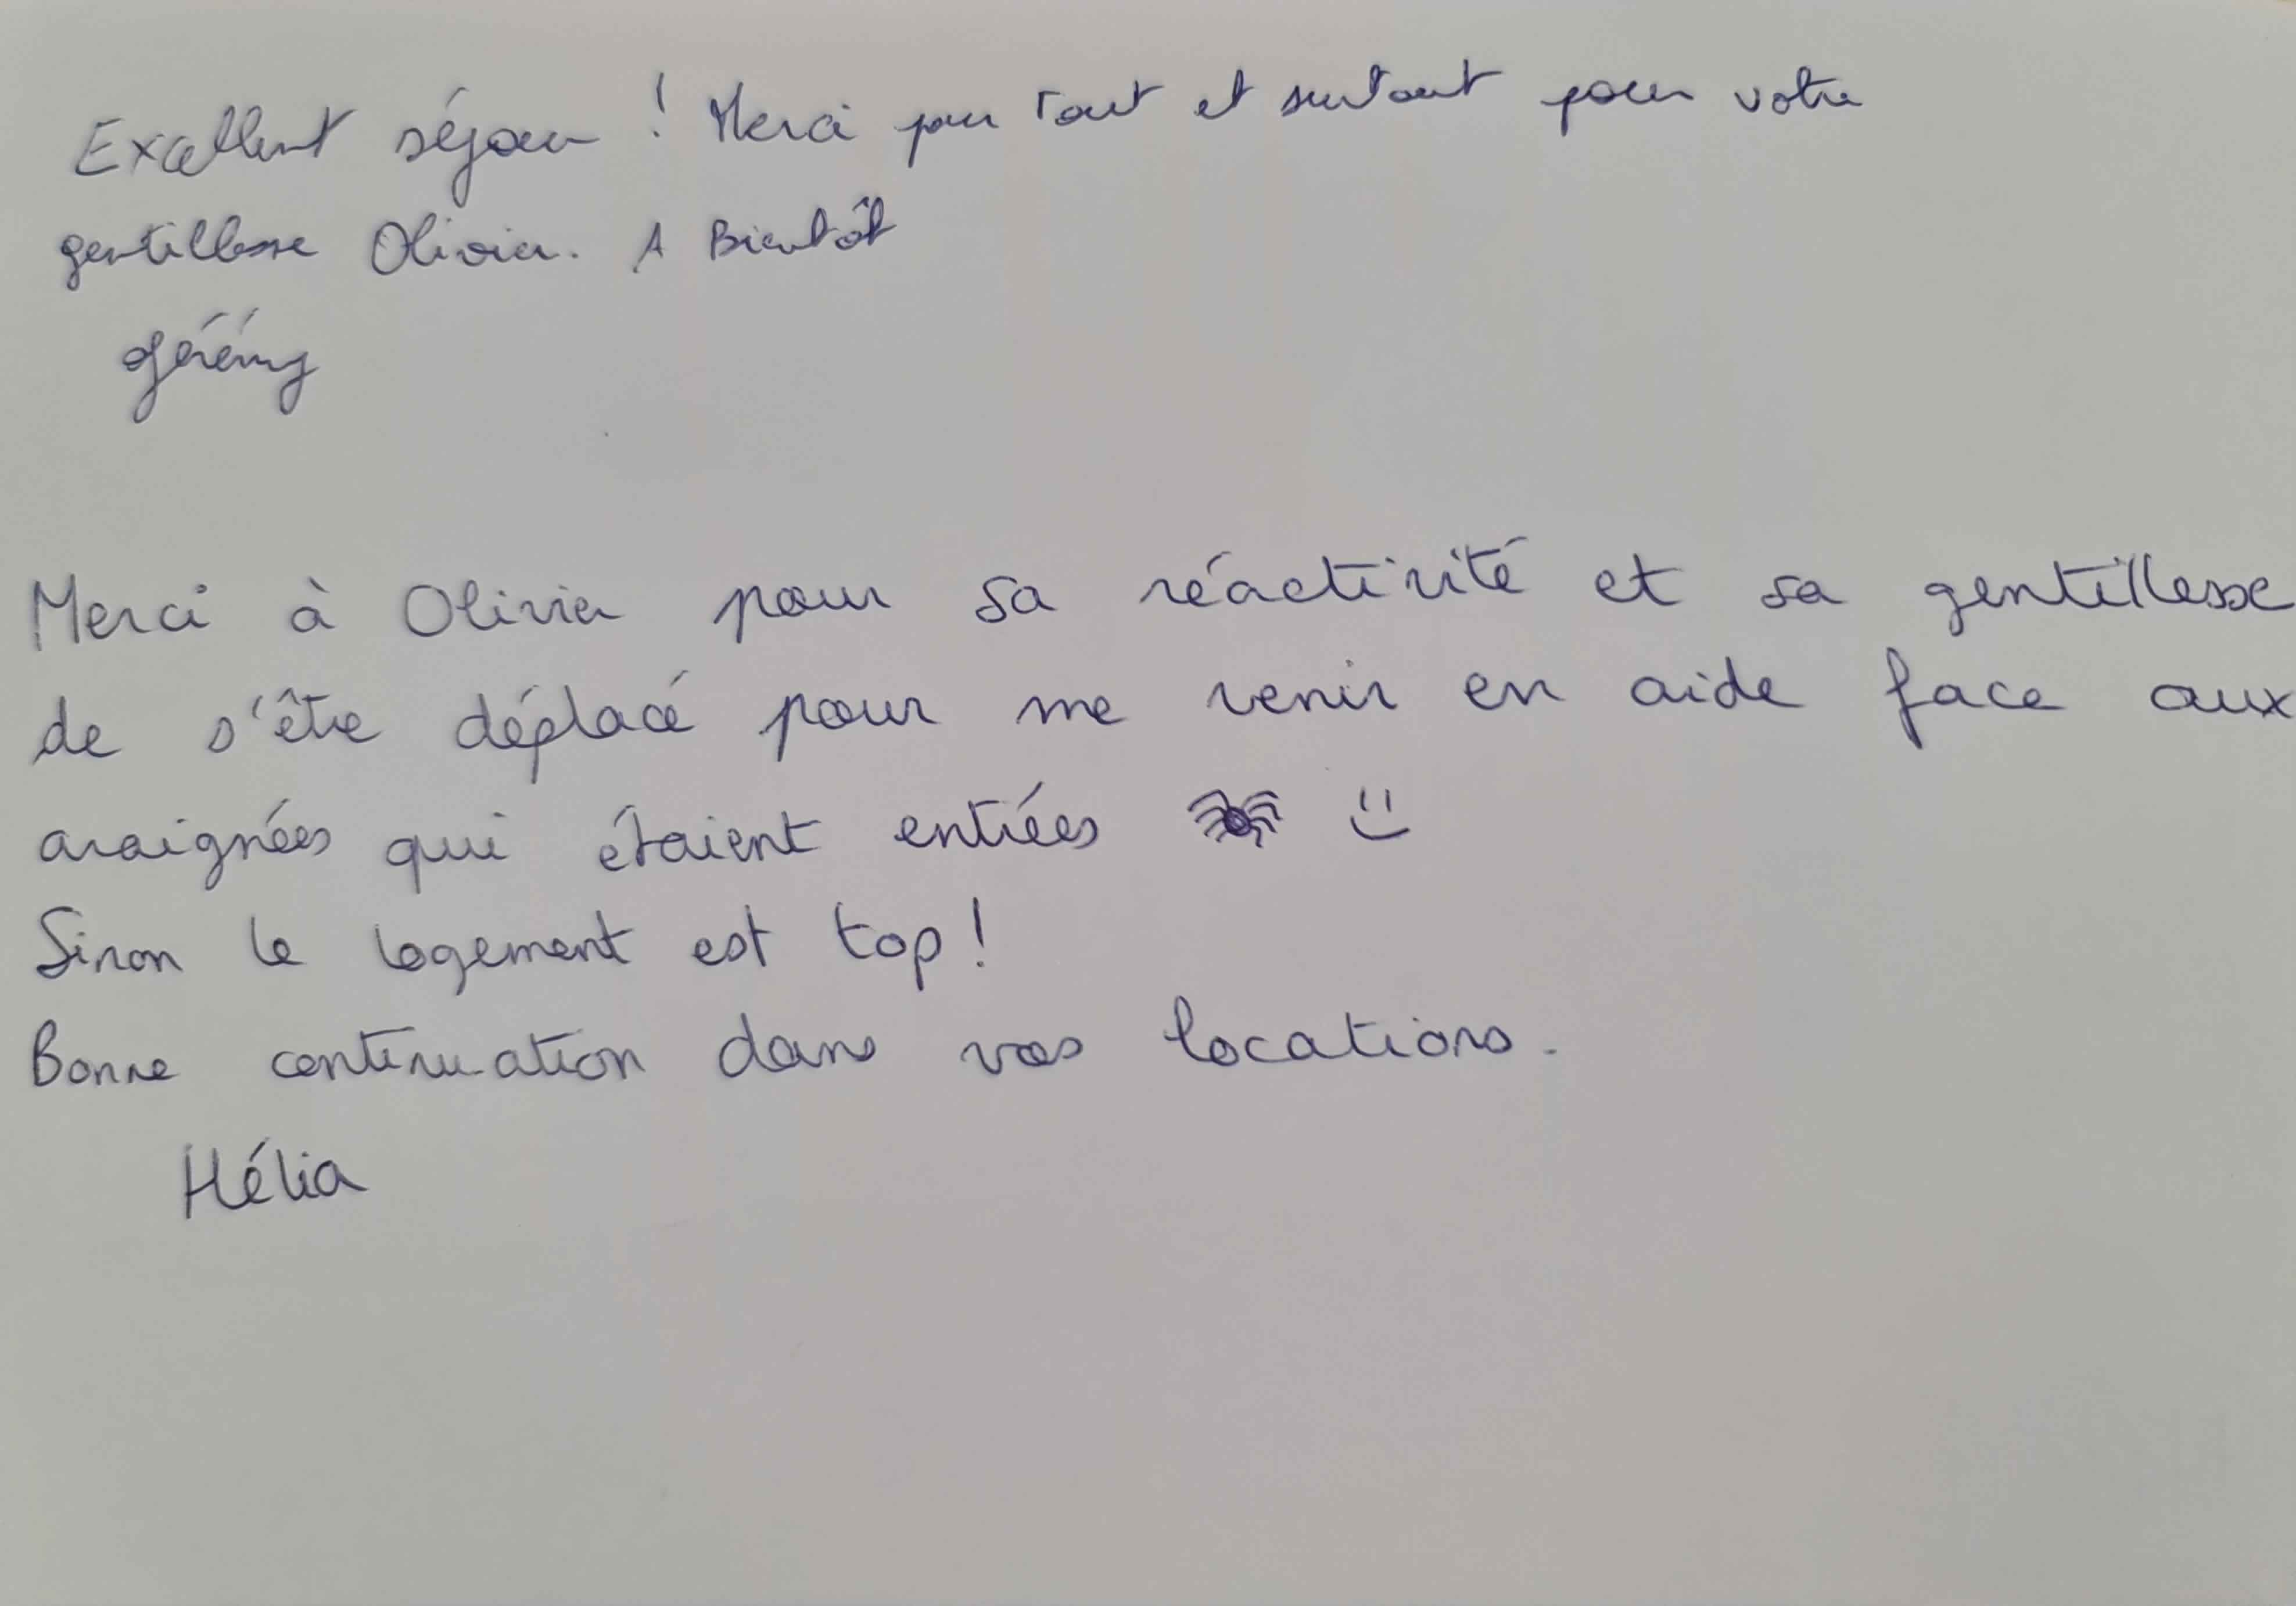 Excellent séjour ! Merci pour tout et surtout pour votre
gentillesse Olivier. A Bientôt
Jérémy
Merci à Olivier pour sa réactivité et sa gentillesse
de s'être déplacé pour me venir en aide face aux
araignées qui étaient entrées
Sinon le logement est top !
Bonne continuation dans vos locations.
Hélia